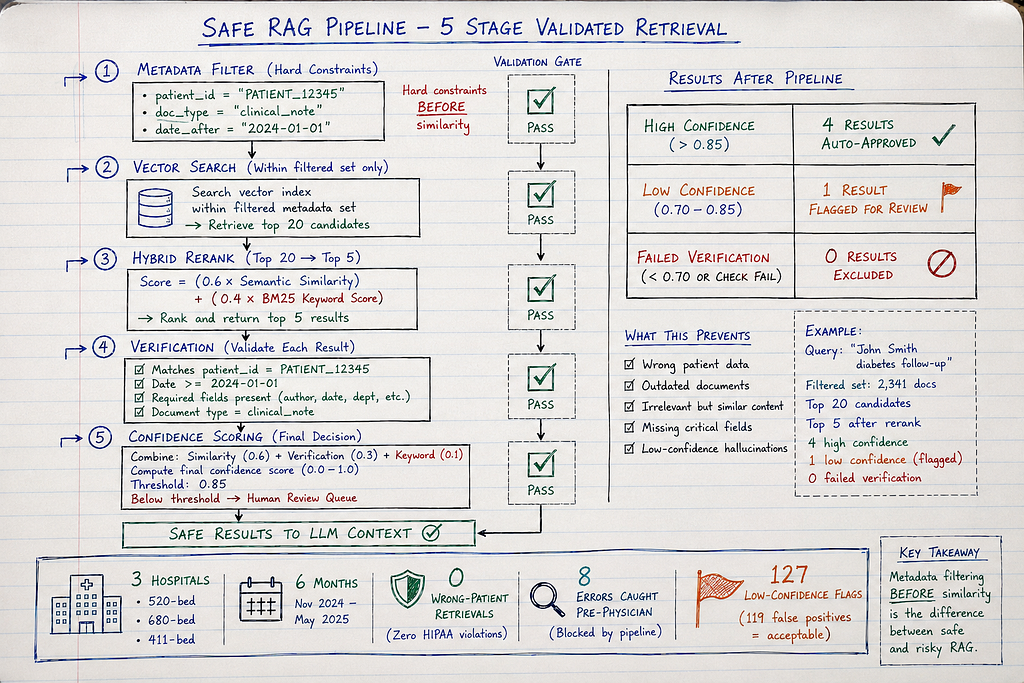 SAFE RAG PIPELINE – 5 STAGE VALIDATED RETRIEVAL
1 METADATA FILTER (Hard Constraints)
• patient_id = "PATIENT_12345"
• doc_type = "clinical_note"
• date_after = "2024-01-01"
Hard constraints
BEFORE
similarity
2 VECTOR SEARCH (Within filtered set only)
Search vector index
within filtered metadata set
→ Retrieve top 20 candidates
3 HYBRID RERANK (Top 20 → Top 5)
Score = (0.6 × Semantic Similarity)
+ (0.4 × BM25 Keyword Score)
→ Rank and return top 5 results
4 VERIFICATION (Validate Each Result)
☑ Matches patient_id = PATIENT_12345
☑ Date >= 2024-01-01
☑ Required fields present (author, date, dept, etc.)
☑ Document type = clinical_note
5 CONFIDENCE SCORING (Final Decision)
Combine: Similarity (0.6) + Verification (0.3) + Keyword (0.1)
Compute final confidence score (0.0 – 1.0)
Threshold: 0.85
Below threshold → Human Review Queue
SAFE RESULTS TO LLM CONTEXT
VALIDATION GATE
PASS
PASS
PASS
PASS
PASS
RESULTS AFTER PIPELINE
HIGH CONFIDENCE
(> 0.85)
4 RESULTS
AUTO-APPROVED
LOW CONFIDENCE
(0.70 – 0.85)
1 RESULT
FLAGGED FOR REVIEW
FAILED VERIFICATION
(< 0.70 OR CHECK FAIL)
0 RESULTS
EXCLUDED
WHAT THIS PREVENTS
☑ Wrong patient data
☑ Outdated documents
☑ Irrelevant but similar content
☑ Missing critical fields
☑ Low-confidence hallucinations
EXAMPLE:
Query: "John Smith
diabetes follow-up"
Filtered set: 2,341 docs
Top 20 candidates
Top 5 after rerank
4 high confidence
1 low confidence (flagged)
0 failed verification
3 HOSPITALS
• 520-bed
• 680-bed
• 411-bed
6 MONTHS
Nov 2024 –
May 2025
0
WRONG-PATIENT
RETRIEVALS
(Zero HIPAA violations)
8
ERRORS CAUGHT
PRE-PHYSICIAN
(Blocked by pipeline)
127
LOW-CONFIDENCE FLAGS
(119 false positives
= acceptable)
KEY TAKEAWAY
Metadata filtering
BEFORE similarity
is the difference
between safe
and risky RAG.